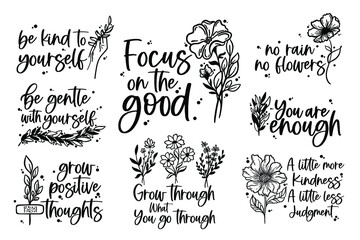 be kind to
yourself
Focus
on the
good.
no rain
no flowers
be gentle
with yourself
You are
enough
grow
positive
thoughts
Grow through
What
You go through
A little more
Kindness,
A little less
Judgment.